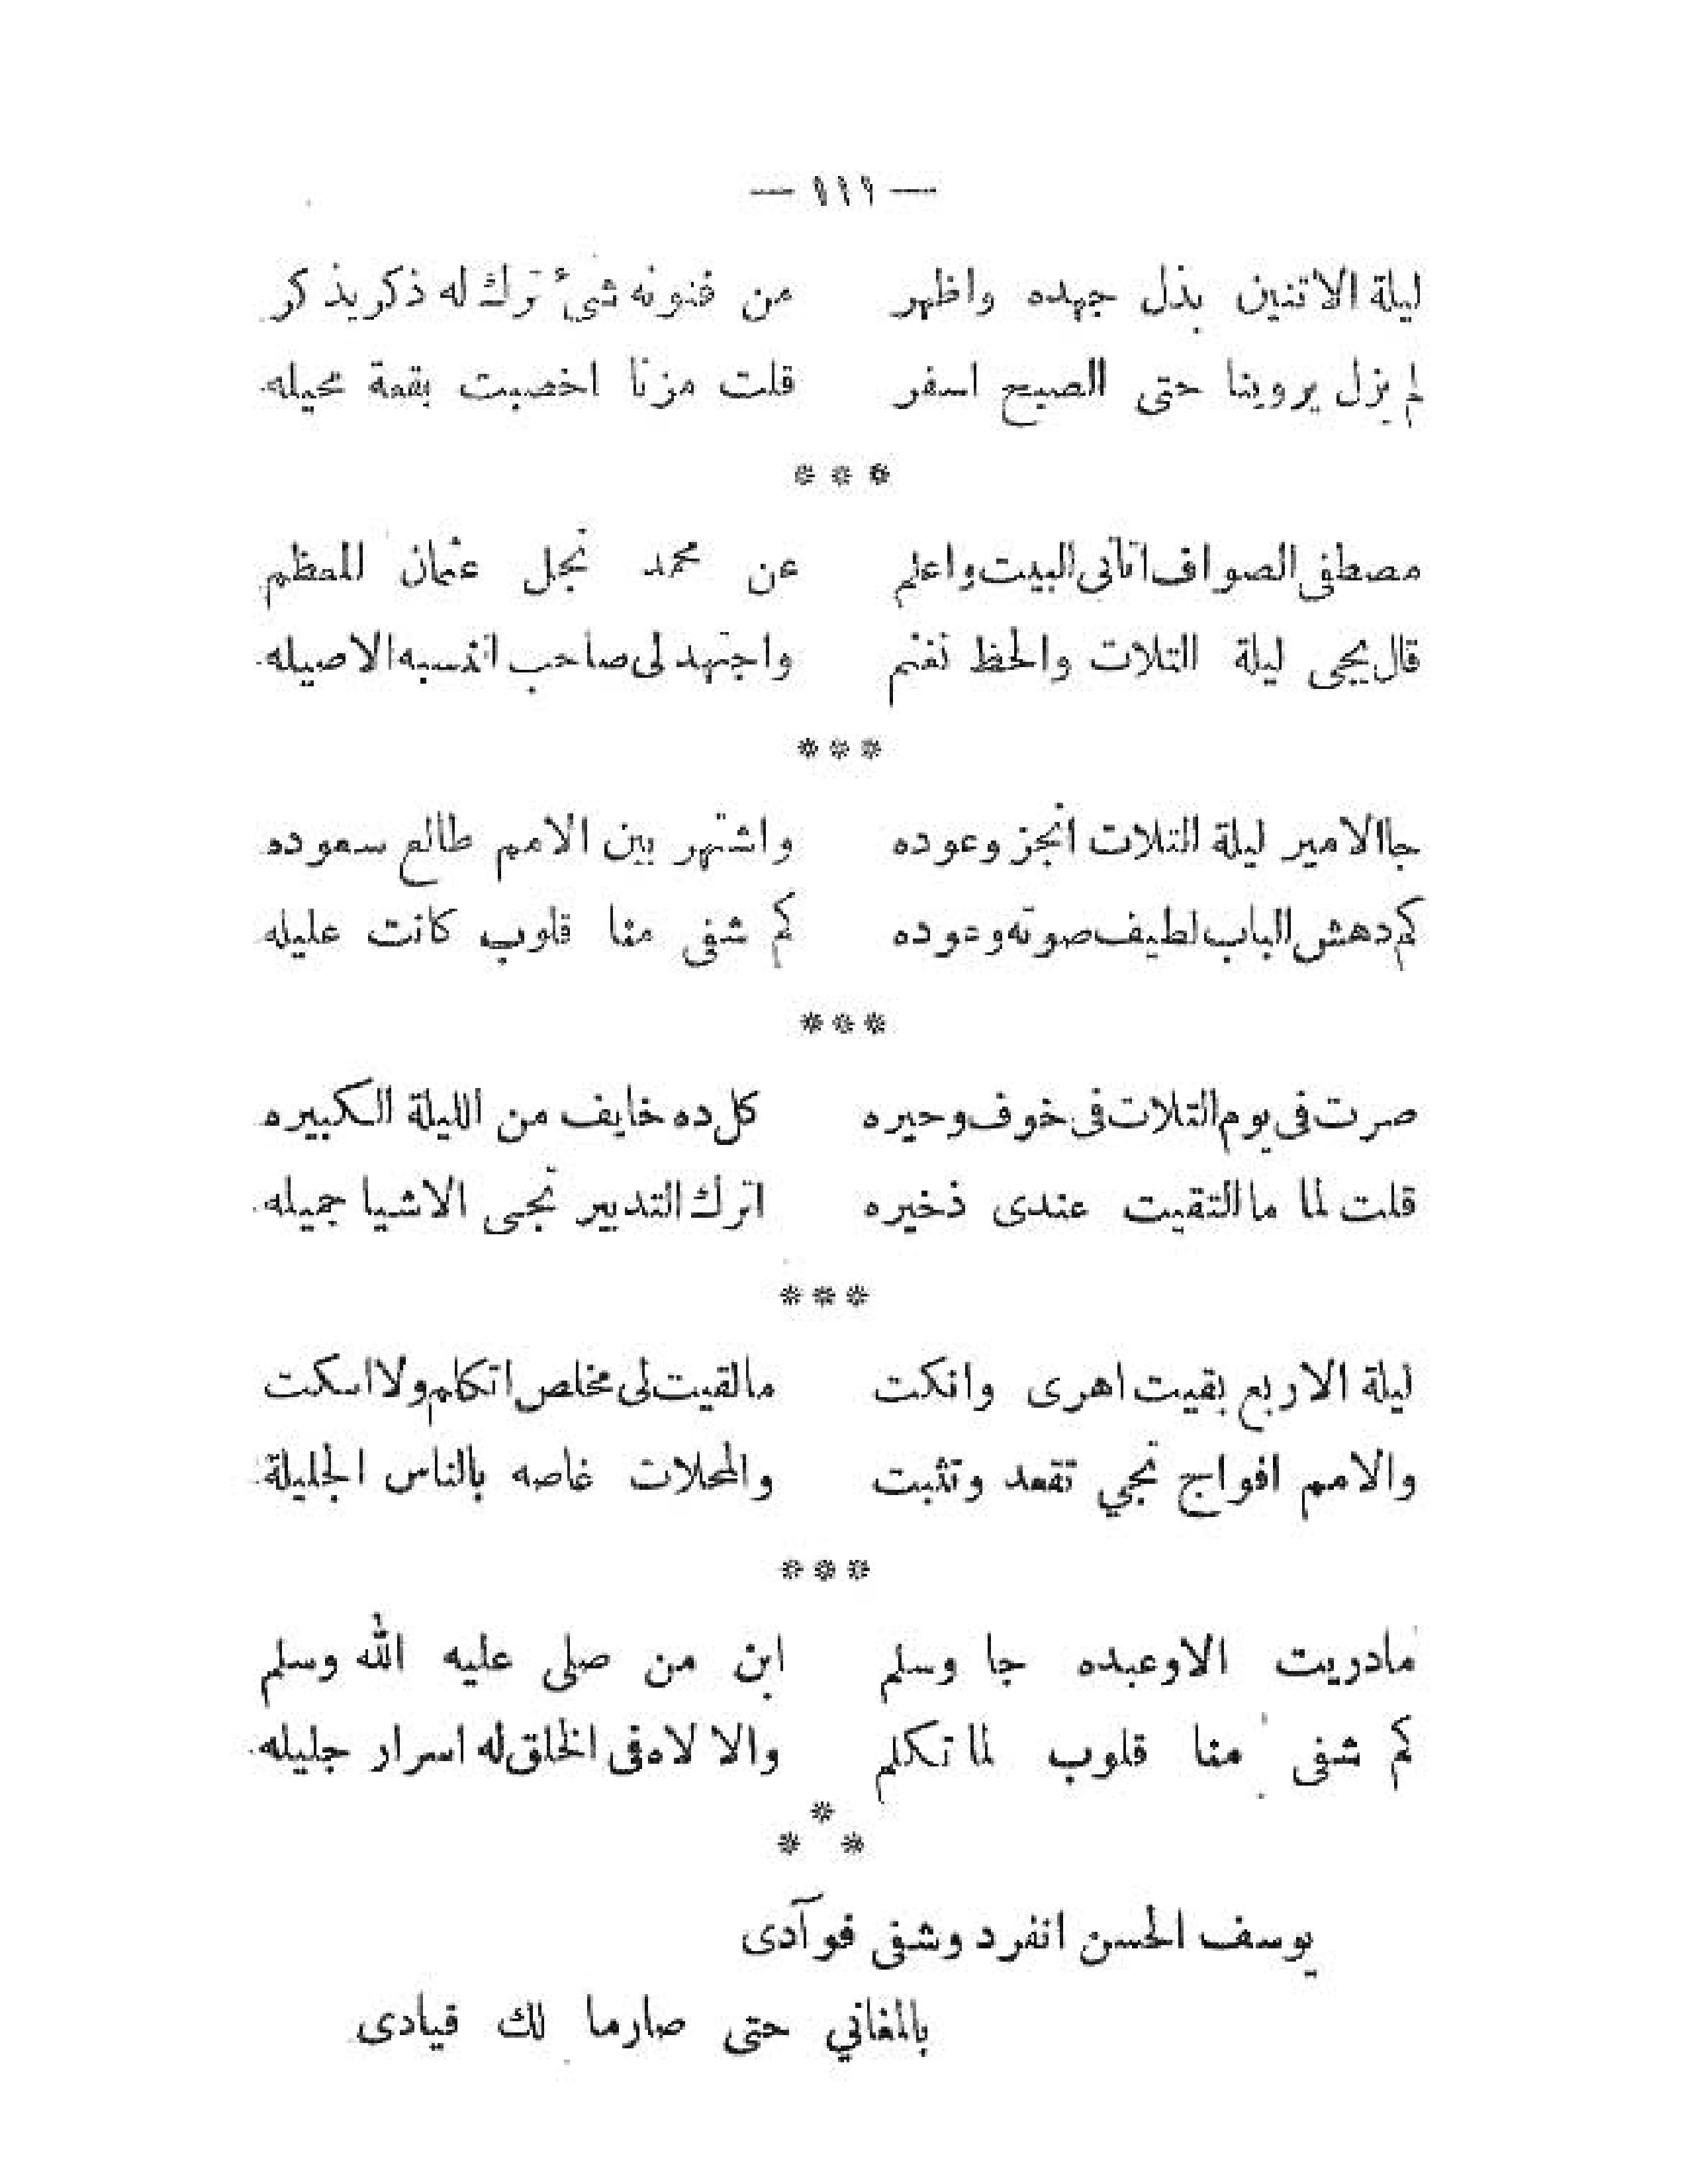 — ١١١ —
ليلة الاتنين بذل جهده واظهر من فنونه شىء ترك له ذكر يذكر
لم يزل يروينا حتى الصبح اسفر قلت مزنا اخصبت بقمة محيله
* * *
مصطفى الصواف اتانى البيت واعلم عن محمد نجل عثمان المعظم
قال يحيى ليلة التلات والحظ تغنم واجتهد لى صاحب النسبه الاصيله
* * *
جا الامير ليلة التلات انجز وعوده واشتهر بين الامم طالع سعوده
كم دهش الباب لطيف صوته وعوده كم شفى منا قلوب كانت عليله
* * *
صرت فى يوم التلات فى خوف وحيره كل ده خايف من الليلة الكبيره
قلت لما ما التقيت عندى ذخيره اترك التدبير تجى الاشيا جميله
* * *
ليلة الاربع بقيت اهرى وانكت مالقيت لى مخلص اتكلم ولا اسكت
والامم افواج تجي تقعد وتثبت والمحلات غاصه بالناس الجليلة
* * *
مادريت الا وعبده جا وسلم ابن من صلى عليه الله وسلم
كم شفى منا قلوب لما تكلم والا لاه فى الخلق له اسرار جليله
* * *
يوسف الحسن انفرد وشفى فوآدى
بالمغاني حتى صار مالك قيادى